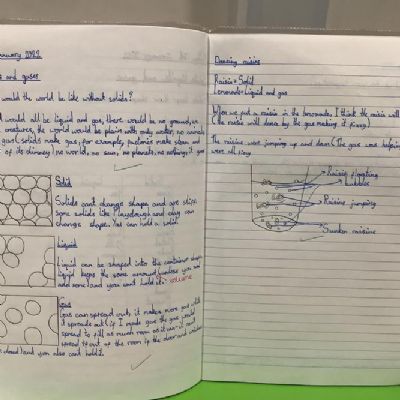 January 2023
s and gases
would the world be like without solids?
would all be liquid and gas, there would be no ground, or
creatures, the world would be plain with only water, no animals
solids make gas, for example, factories make steam and
of its chimney) no world, no sun, no planets, no nothing, if gas
Solid
Solids cant change shape, and are stiff
some solids like Playdough and clay can
change shape. You can hold a solid.
Liquid
Liquid can be shaped into the container shape.
Liquid keeps the same unless you
add some and you cant hold it. volume
Gas
Gas can spread out, it makes more
spreads out if I made gas the gas would
spread to fill as much room as it can it
spread out of the room if the door and window
closed) and you also cant hold it.
Dancing raisins
Raisin = Solid
Lemonade = Liquid and gas
When we put a raisin in the lemonade, I think the raisin will
(The raisin will dance by the gas making it)
The raisins were jumping up and down (The gas were helping
were all
Raisin floating
bubbles
Raisins jumping
Sunken raisins